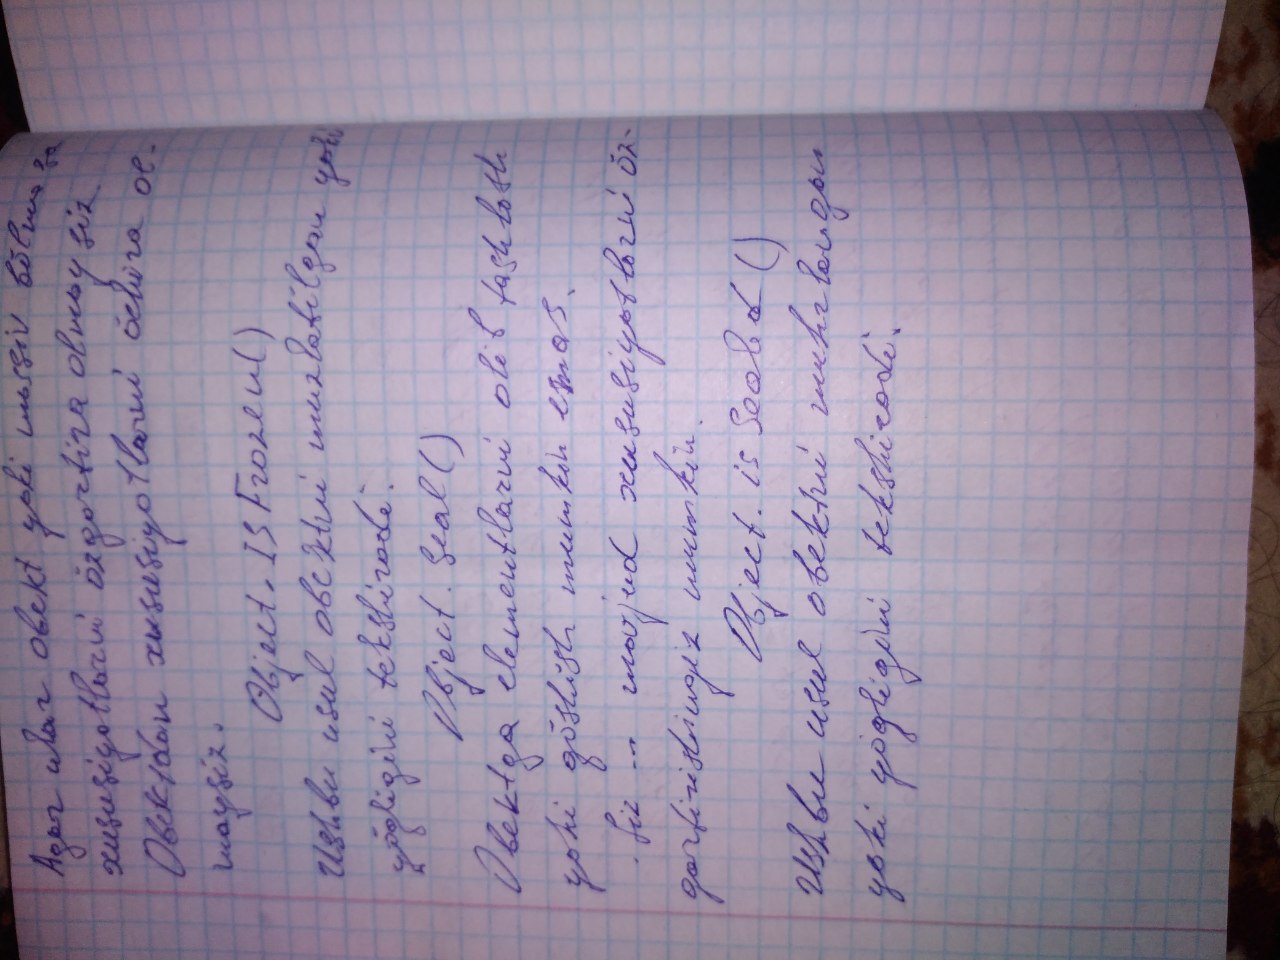 Agar ular obekt yoki massiv bõlmasa
xususiyatlarni õzgartira olmaysiz
Obektdan xususiyatlarni õchira ol-
maysiz.
Object.isFrozen()
Ushbu usul obektni muzlatilgan yoki
yõqligini tekshiradi.
Object.seal()
Obektga elementlarni olib tashlash
yoki qõshish mumkin emas.
mavjud xususiyatlarni õz-
gartirishingiz mumkin.
Object.isSealed()
Ushbu usul obektni muhrlangan
yoki yõqligini tekshiradi.